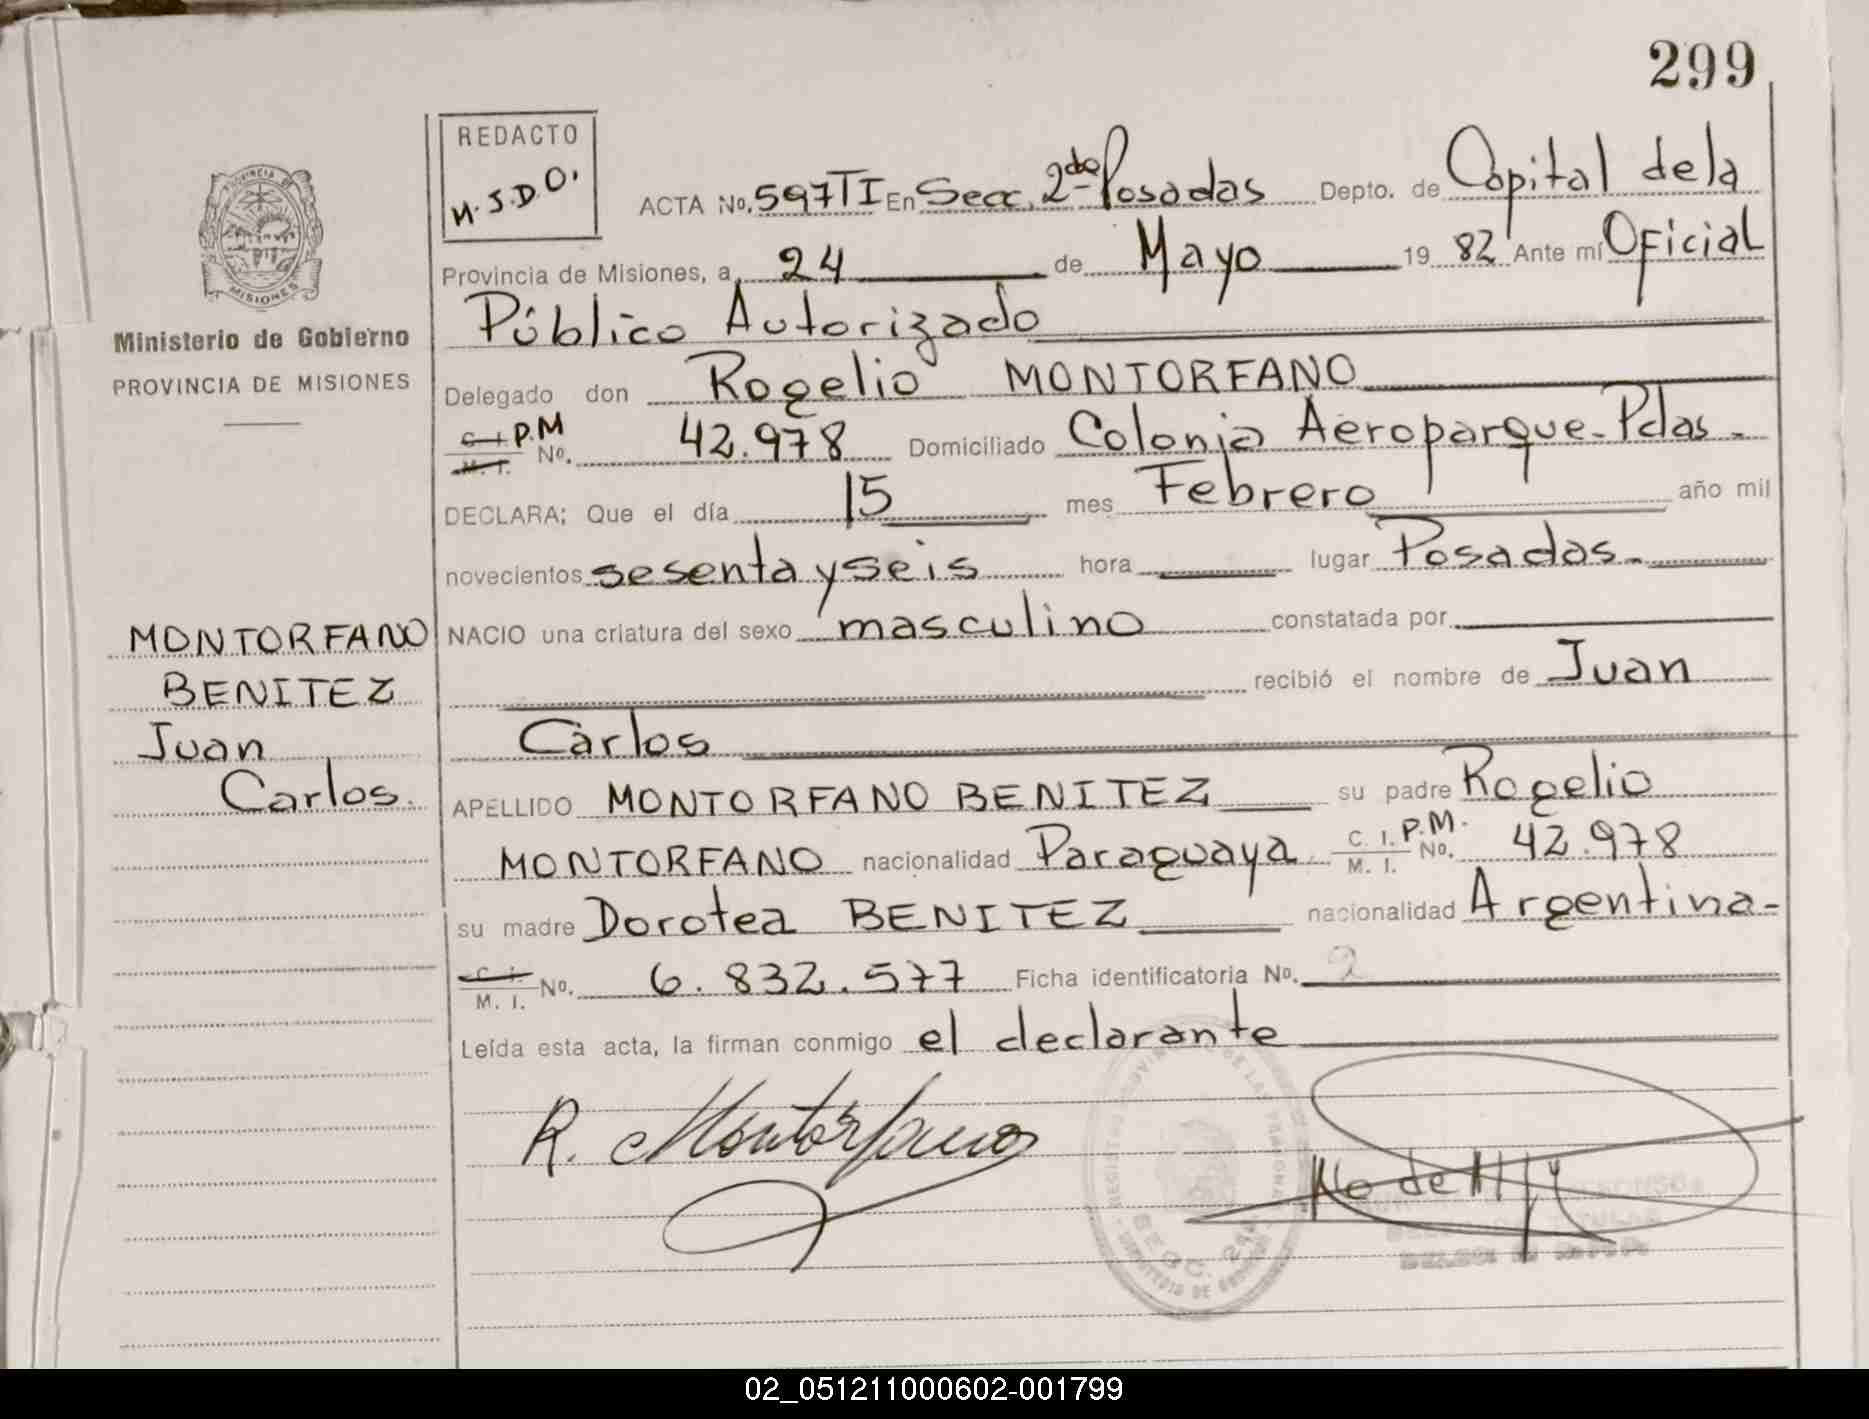 299
REDACTO
M.J.D.O.
ACTA No. 597TI En Secc. 2da Posadas Depto. de Capital de la
Provincia de Misiones, a 24 de Mayo 19 82 Ante mí Oficial
Público Autorizado
Delegado don Rogelio MONTORFANO
C. I. P.M
M. I. No. 42.978 Domiciliado Colonia Aeroparque-Pdas-
DECLARA; Que el día 15 mes Febrero año mil
novecientos sesenta y seis hora lugar Posadas.
NACIO una criatura del sexo masculino constatada por
recibió el nombre de Juan
Carlos
APELLIDO MONTORFANO BENITEZ su padre Rogelio
MONTORFANO nacionalidad Paraguaya C. I. P.M. M. I. No. 42.978
su madre Dorotea BENITEZ nacionalidad Argentina-
C. I. M. I. No. 6.832.577 Ficha identificatoria No. 2
Leída esta acta, la firman conmigo el declarante
R. Montorfano
PROVINCIA DE MISIONES
Ministerio de Gobierno
PROVINCIA DE MISIONES
MONTORFANO
BENITEZ
Juan
Carlos.
02_051211000602-001799